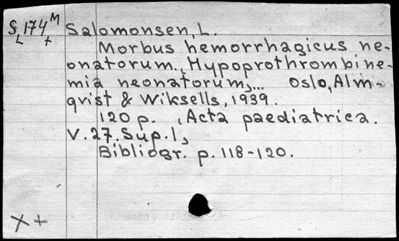 S 174 M Salomonsen, L.
L +
Morbus hemorrhagicus ne-
onatorum., Hypoprothrombine-
mia neonatorum,... Oslo, Alm-
qvist & Wiksells, 1939.
120 p. , Acta paediatrica.
V. 27. Sup. 1,
Bibliogr. p. 118-120.
X +